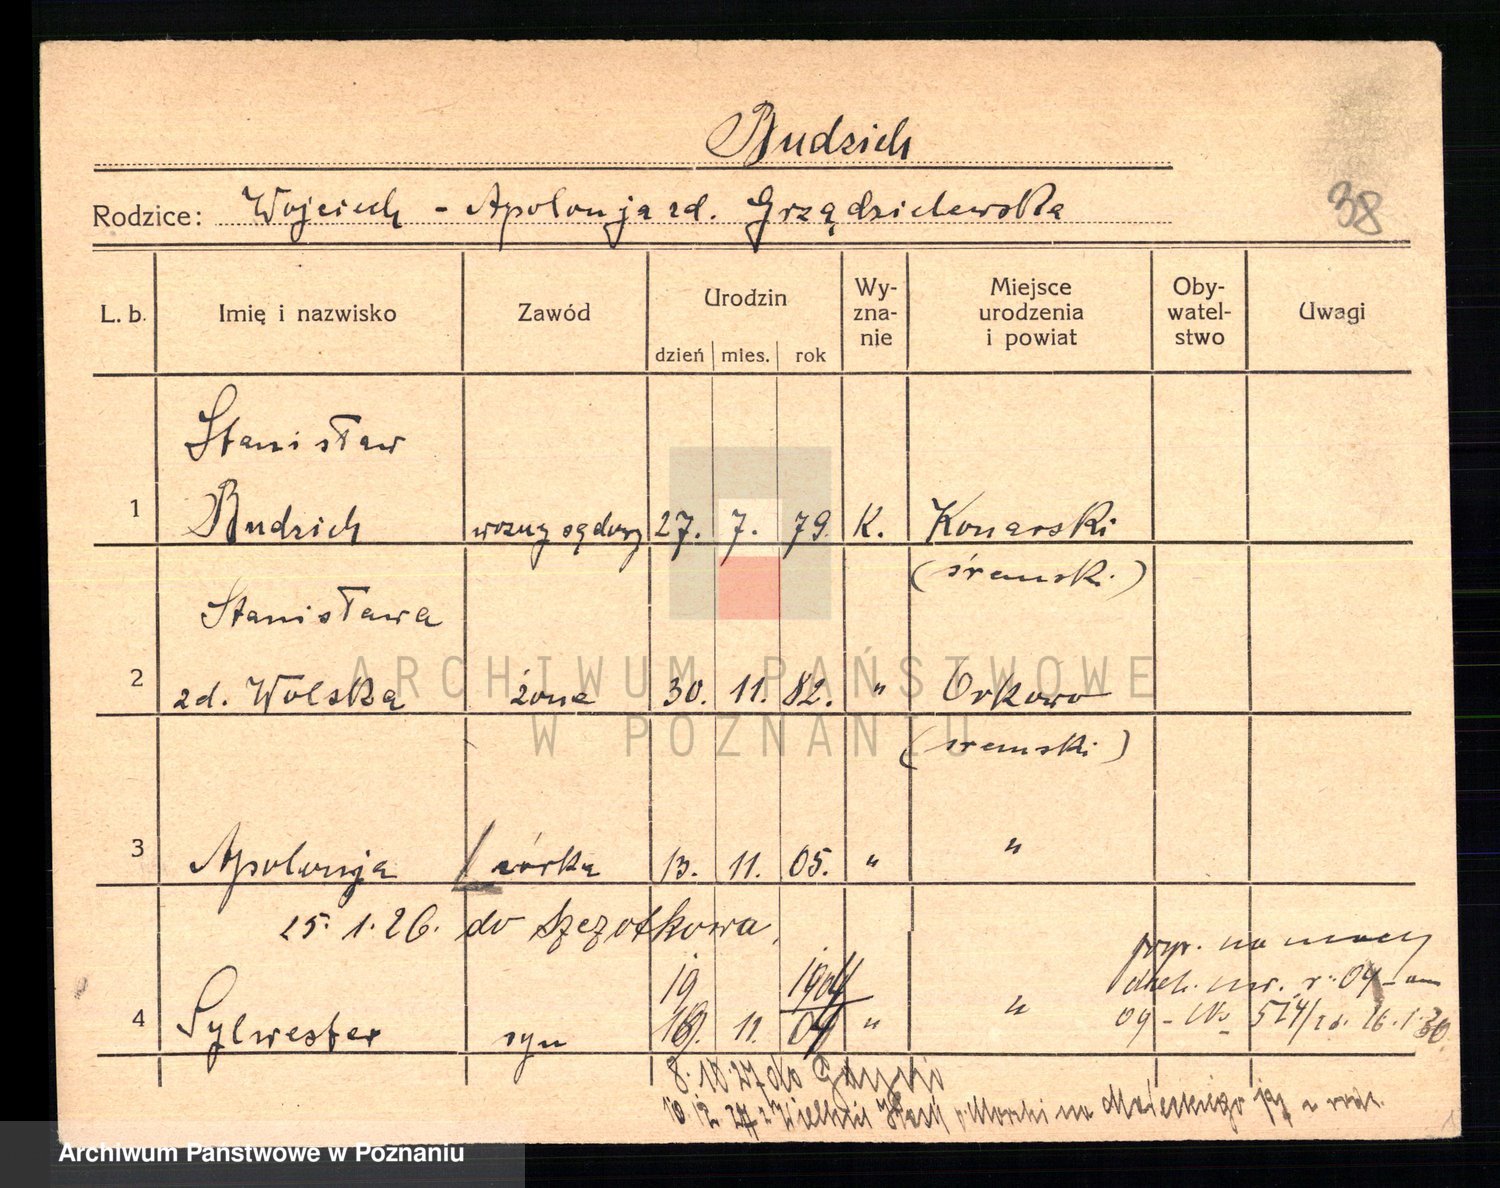 Budzich
38
Rodzice: Wojciech - Apolonja zd. Grządzielewska
L. b. Imię i nazwisko Zawód Urodzin dzień mies. rok Wy-zna-nie Miejsce urodzenia i powiat Oby-watel-stwo Uwagi
Stanisław
1 Budzich woźny sądowy 27. 7. 79. K. Konarski
(śremsk.)
Stanisława
2 zd. Wolska żona 30. 11. 82. " Orkowo
(śremski)
3 Apolonja córka 13. 11. 05. " "
25. 1. 26. do Szczotkowa,
19 1904
4 Sylwester syn 11. 09 " "
popr. na mocy
09 - No 574/ 26. 1. 30.
8. 10. 27 do Gdyni
10. 12. 27 z Wielkiej na Małeckiego
ARCHIWUM PAŃSTWOWE
W POZNANIU
Archiwum Państwowe w Poznaniu